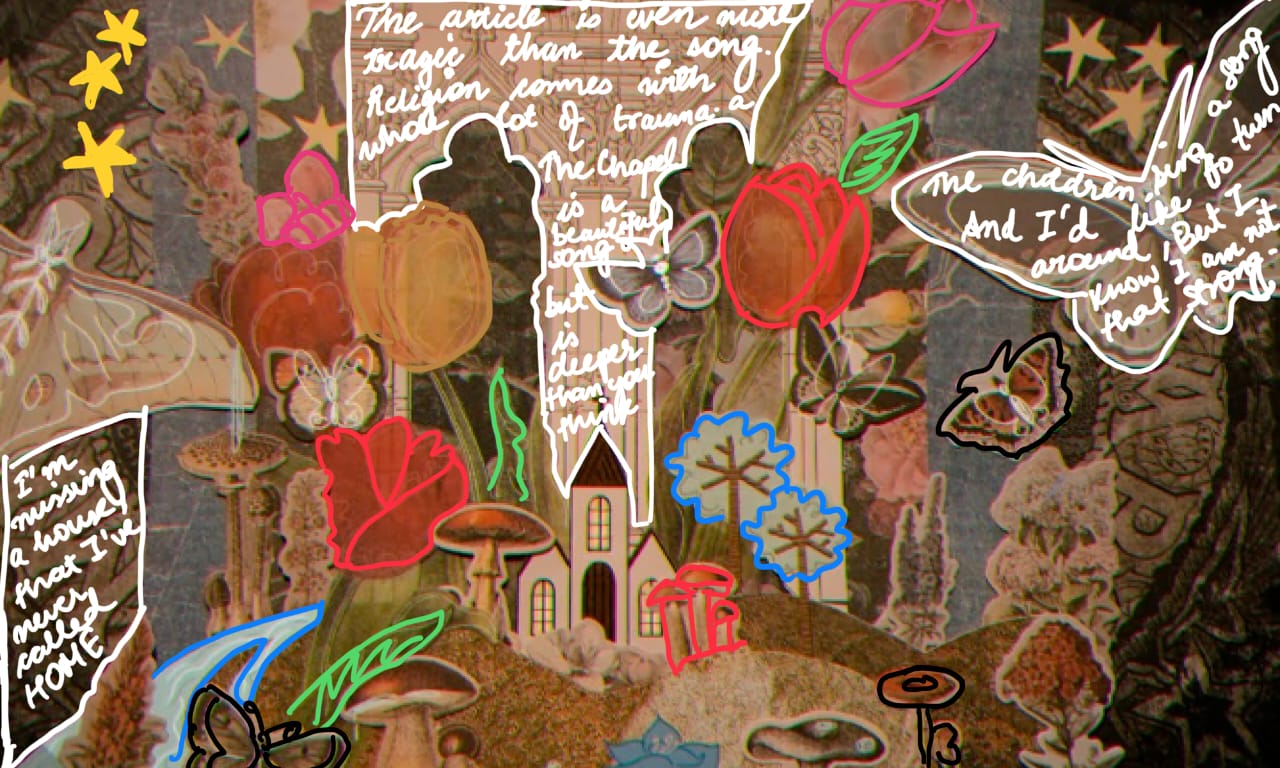 The article is even more
tragic than the song.
Religion comes with a
whole lot of trauma.
The Chapel
is a
beautiful
song
but
is
deeper
than you
think
The children sing a song
And I'd like to turn
around, But I
know I am not
that strong.
I'm
missing
a house
that I've
never
called
HOME